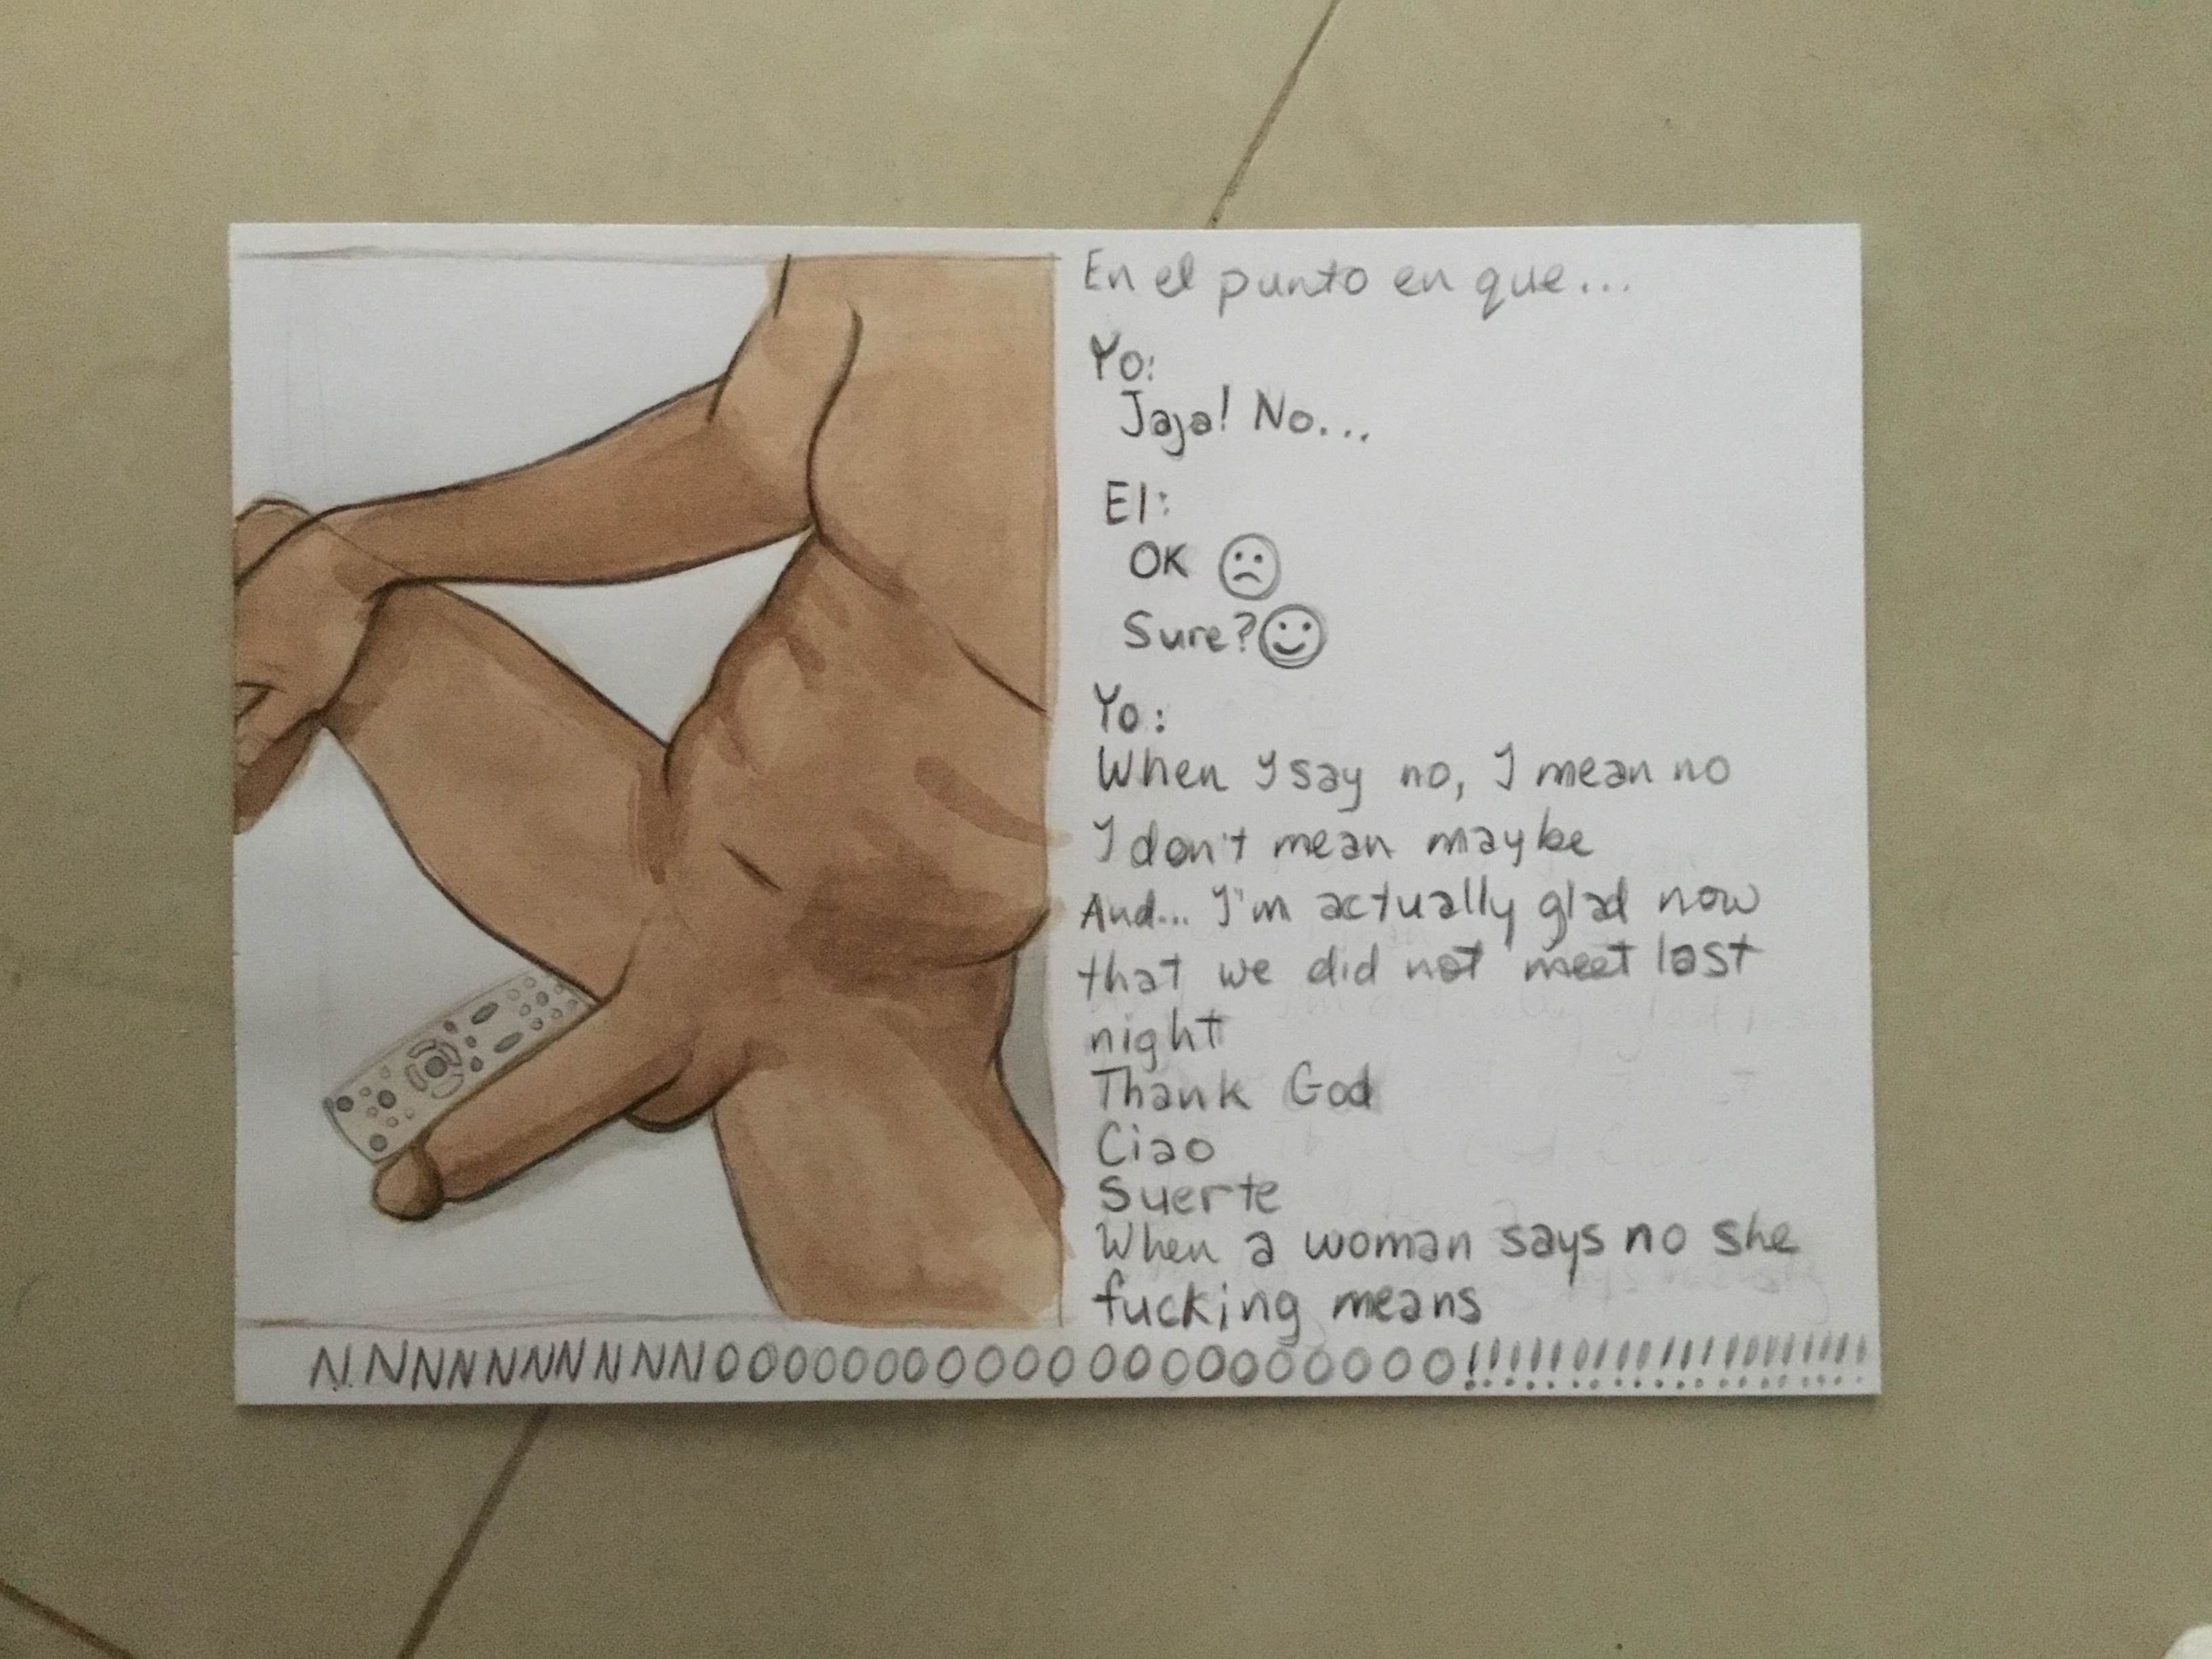 En el punto en que...
Yo:
Jaja! No...
El:
OK ☹
Sure? ☺
Yo:
When I say no, I mean no
I don't mean maybe
And... I'm actually glad now
that we did not meet last
night
Thank God
Ciao
Suerte
When a woman says no she
fucking means
NNNNNNNNNNNOOOOOOOOOOOOOOOOOOOO!!!!!!!!!!!!!!!!!!!!!!